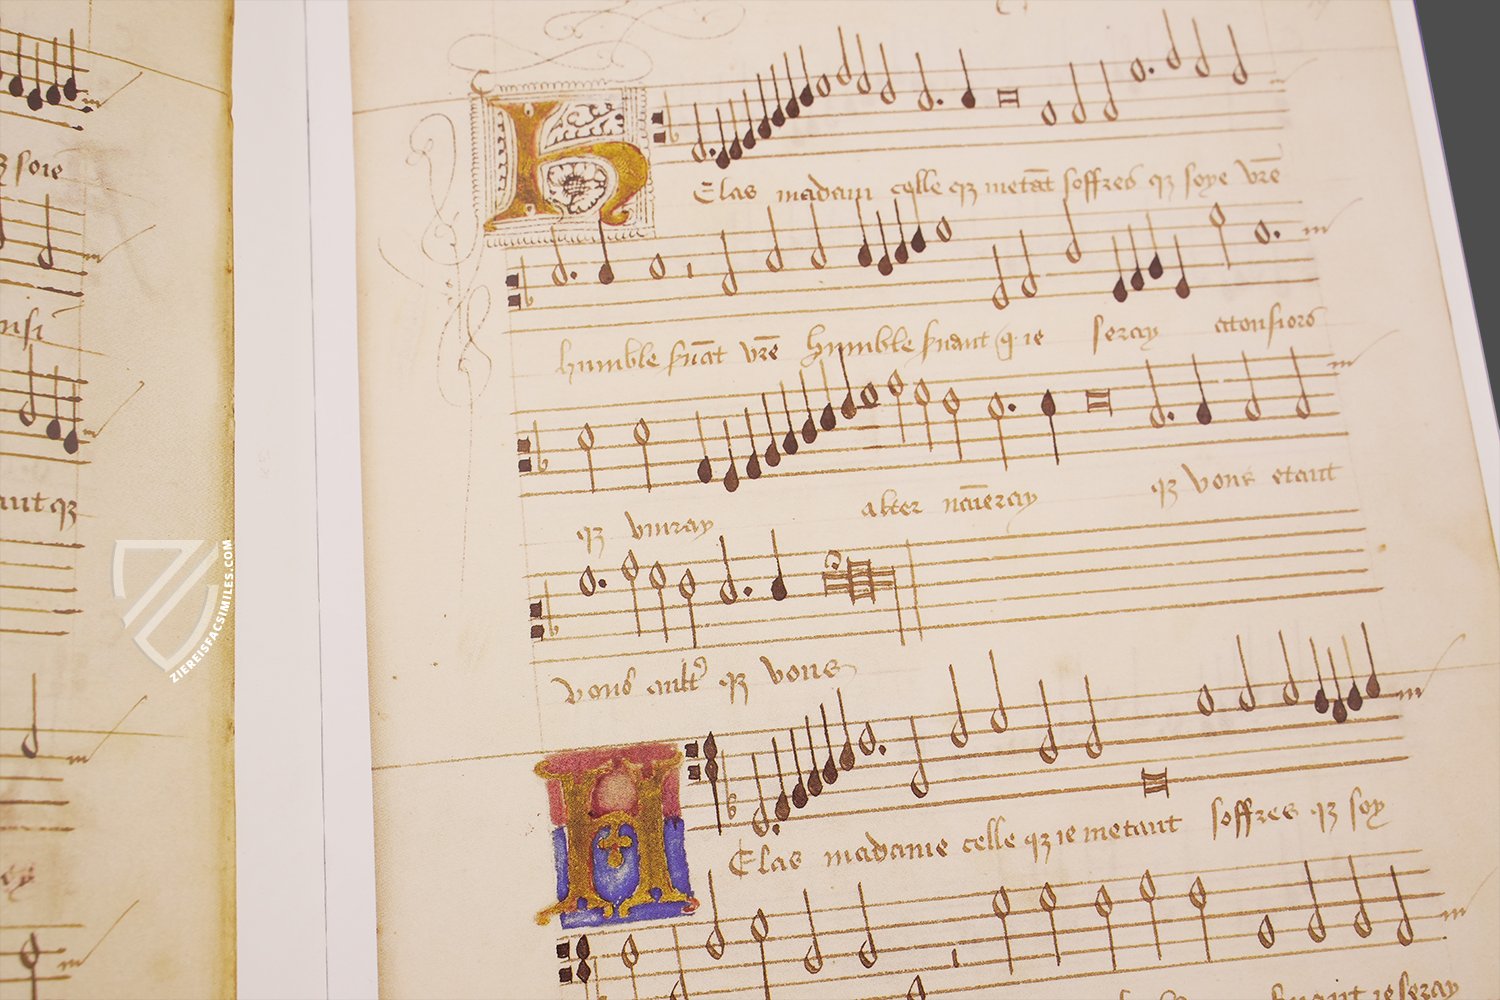 ꝫ soie
nsi
aut qꝫ
ZIEREISFACSIMILES.COM
HElas madam celle qꝫ metāt soffres qꝫ soye vr̄e
humble s'uāt vr̄e humble s'uant q̃ ie seray atousiors
qꝫ viuray alter nāueray qꝫ vous etant
vous ault' qꝫ vous
HElas madame celle qꝫ ie metant soffres qꝫ soy
ie seray